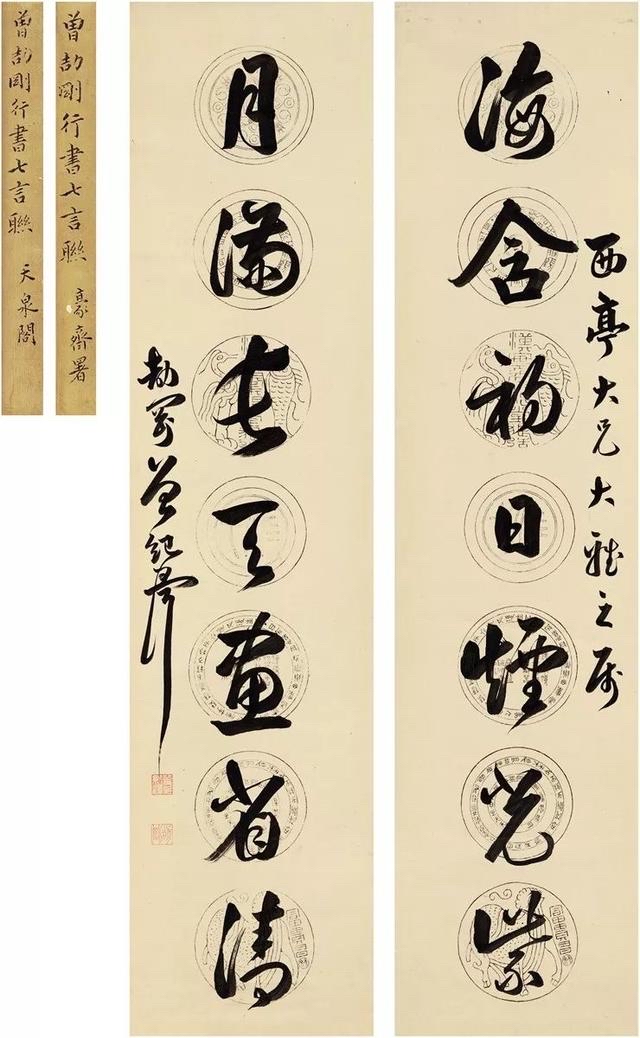 西亭大兄大雅之屬
海含初日煙光紫
月滿長天畫省清
劼剛曾紀澤
曾劼剛行書七言聯 豪齋署
曾劼剛行書七言聯 天泉閣